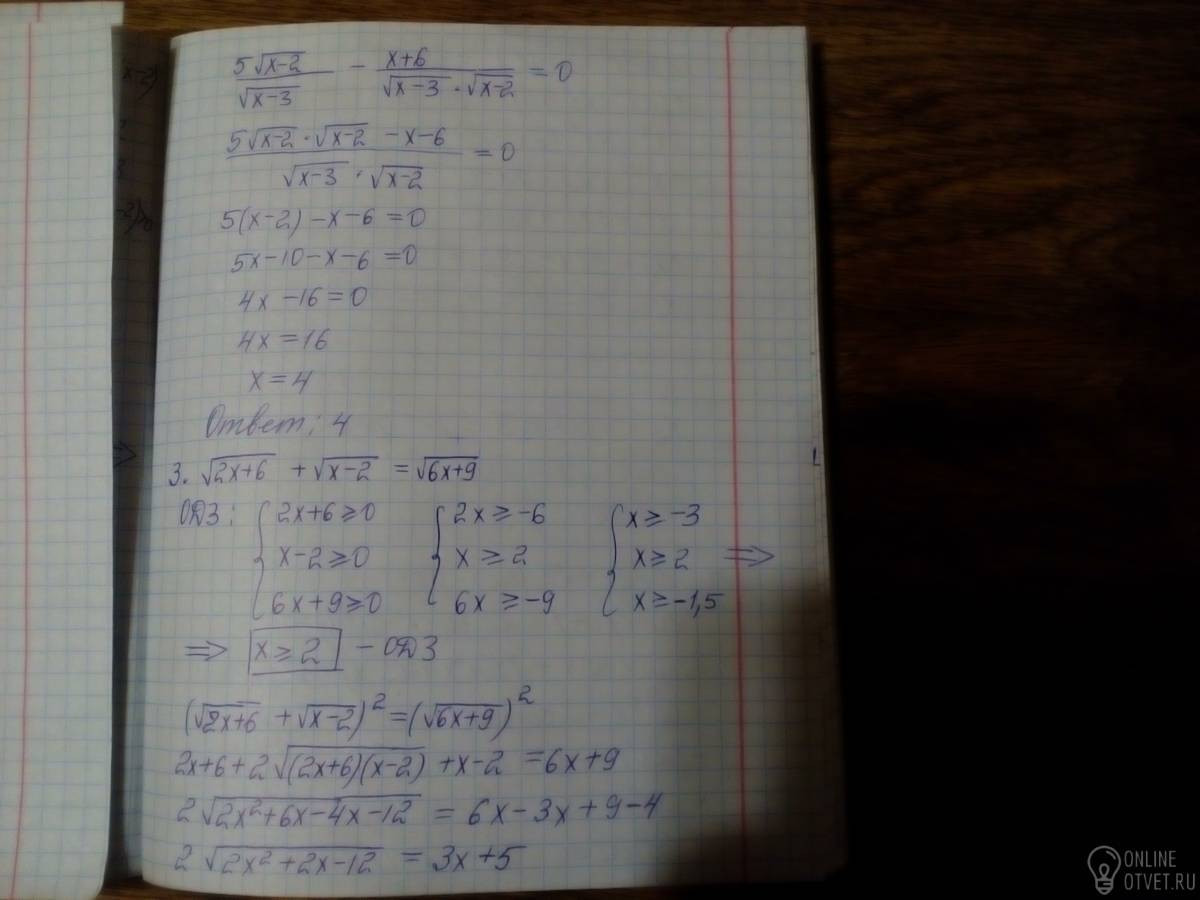 5√(x-2)/√(x-3) - (x+6)/(√(x-3) · √(x-2)) = 0
(5√(x-2) · √(x-2) - x - 6)/(√(x-3) · √(x-2)) = 0
5(x-2) - x - 6 = 0
5x - 10 - x - 6 = 0
4x - 16 = 0
4x = 16
x = 4
Ответ: 4
3. √(2x+6) + √(x-2) = √(6x+9)
ОДЗ: { 2x+6 ≥ 0 { 2x ≥ -6 { x ≥ -3
x-2 ≥ 0 x ≥ 2 x ≥ 2 ⇒
6x+9 ≥ 0 6x ≥ -9 x ≥ -1,5
⇒ x ≥ 2 - ОДЗ
(√(2x+6) + √(x-2))² = (√(6x+9))²
2x+6+2√((2x+6)(x-2)) + x-2 = 6x+9
2√(2x²+6x-4x-12) = 6x-3x+9-4
2√(2x²+2x-12) = 3x+5
ONLINE
OTVET.RU